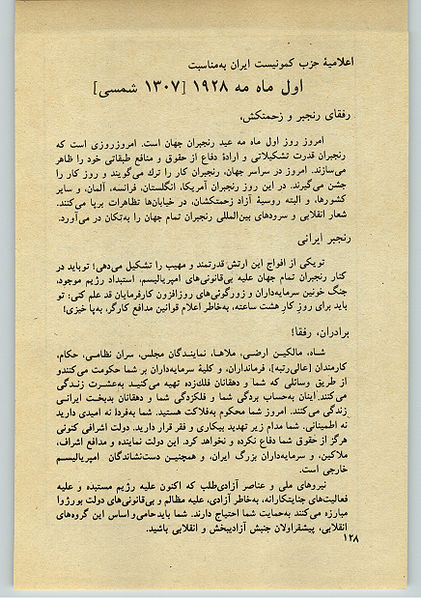 اعلامیهٔ حزب کمونیست ایران به‌مناسبت
اول ماه مه ۱۹۲۸ [۱۳۰۷ شمسی]
رفقای رنجبر و زحمتکش،
امروز روز اول ماه مه عید رنجبران جهان است. امروزروزی است که
رنجبران قدرت تشکیلاتی و ارادهٔ دفاع از حقوق و منافع طبقاتی خود را ظاهر
می‌سازند. امروز در سراسر جهان، رنجبران کار را ترک می‌گویند و روز کار را
جشن می‌گیرند. در این روز رنجبران آمریکا، انگلستان، فرانسه، آلمان، و سایر
کشورها، و البته روسیهٔ آزاد زحمتکشان، در خیابان‌ها تظاهرات برپا می‌کنند.
شعار انقلابی و سرودهای بین‌المللی رنجبران تمام جهان را به‌تکان در می‌آورد.
رنجبر ایرانی
تو یکی از افواج این ارتش قدرتمند و مهیب را تشکیل می‌دهی؛ تو باید در
کنار رنجبران تمام جهان علیه بی‌قانونی‌های امپریالیسم، استبداد رژیم موجود،
جنگ خونین سرمایه‌داران و زورگوئی‌های روزافزون کارفرمایان قد علم کنی؛ تو
باید برای روز کار هشت ساعته، به‌خاطر اعلام قوانین مدافع کارگر، به‌پا خیزی!
برادران، رفقا!
شاه، مالکین ارضی، ملاها، نمایندگان مجلس، سران نظامی، حکام،
کارمندان [عالی‌رتبه]، فرمانداران، و کلیهٔ سرمایه‌داران بر شما حکومت می‌کنندو
از طریق وسائلی که شما و دهقانان فلک‌زده تهیه می‌کنید به‌عشرت زندگی
می‌کنند. اینان به‌حساب بردگی شما و فلکزدگی شما و دهقانان بدبخت ایرانی
زندگی می‌کنند. امروز شما محکوم به‌فلاکت هستید. شما به‌فردا نه امیدی دارید
نه اطمینانی. شما مدام زیر تهدید بیکاری و فقر قرار دارید. دولت اشرافی کنونی
هرگز از حقوق شما دفاع نکرده و نخواهد کرد. این دولت نماینده و مدافع اشراف،
ملاکین، و سرمایه‌داران بزرگ ایران، و همچنین دست‌نشاندگان امپریالیسم
خارجی است.
نیروهای ملی و عناصر آزادی‌طلب که اکنون علیه رژیم مستبده و علیه
فعالیت‌های جنایتکارانه، به‌خاطر آزادی، علیه مظالم و بی‌قانونی‌های دولت بورژوا
مبارزه می‌کنند به‌حمایت شما احتیاج دارند. شما باید حامی‌و‌اساس این گروه‌های
انقلابی، پیشقراولان جنبش آزادیبخش و انقلابی باشید.
۱۲۸